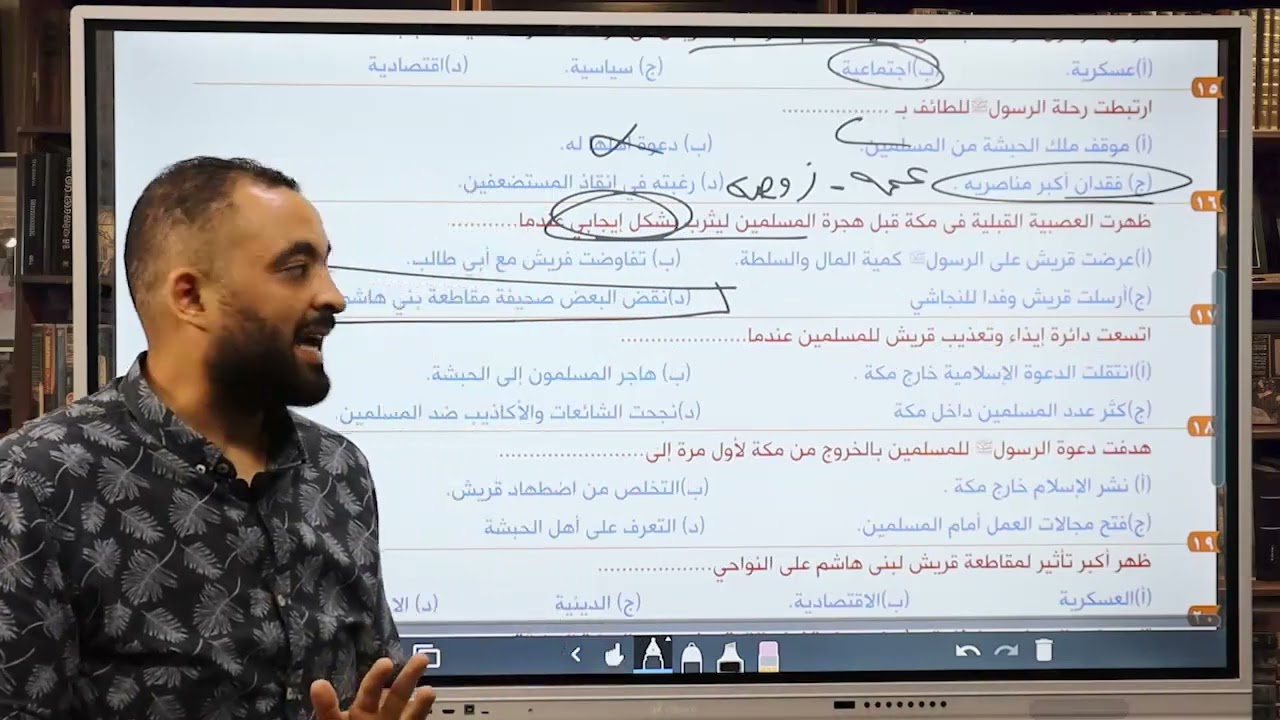 (أ)عسكرية. (ب)اجتماعية (ج) سياسية. (د)اقتصادية
١٥
ارتبطت رحلة الرسول ﷺ للطائف بـ ..................
(أ) موقف ملك الحبشة من المسلمين. (ب) دعوة أهلها له.
(ج) فقدان أكبر مناصريه . عمه - زوجه (د) رغبته في إنقاذ المستضعفين.
١٦
ظهرت العصبية القبلية في مكة قبل هجرة المسلمين ليثرب بشكل إيجابي عندما...........
(أ)عرضت قريش على الرسول ﷺ كمية المال والسلطة. (ب) تفاوضت قريش مع أبي طالب.
(ج)أرسلت قريش وفدا للنجاشي (د)نقض البعض صحيفة مقاطعة بني هاشم
١٧
اتسعت دائرة إيذاء وتعذيب قريش للمسلمين عندما.....................
(أ)انتقلت الدعوة الإسلامية خارج مكة . (ب) هاجر المسلمون إلى الحبشة.
(ج)كثر عدد المسلمين داخل مكة (د)نجحت الشائعات والأكاذيب ضد المسلمين.
١٨
هدفت دعوة الرسول ﷺ للمسلمين بالخروج من مكة لأول مرة إلى........................
(أ) نشر الإسلام خارج مكة . (ب)التخلص من اضطهاد قريش.
(ج)فتح مجالات العمل أمام المسلمين. (د) التعرف على أهل الحبشة
١٩
ظهر أكبر تأثير لمقاطعة قريش لبنى هاشم على النواحي...................
(أ)العسكرية (ب)الاقتصادية. (ج) الدينية (د)
٢٠